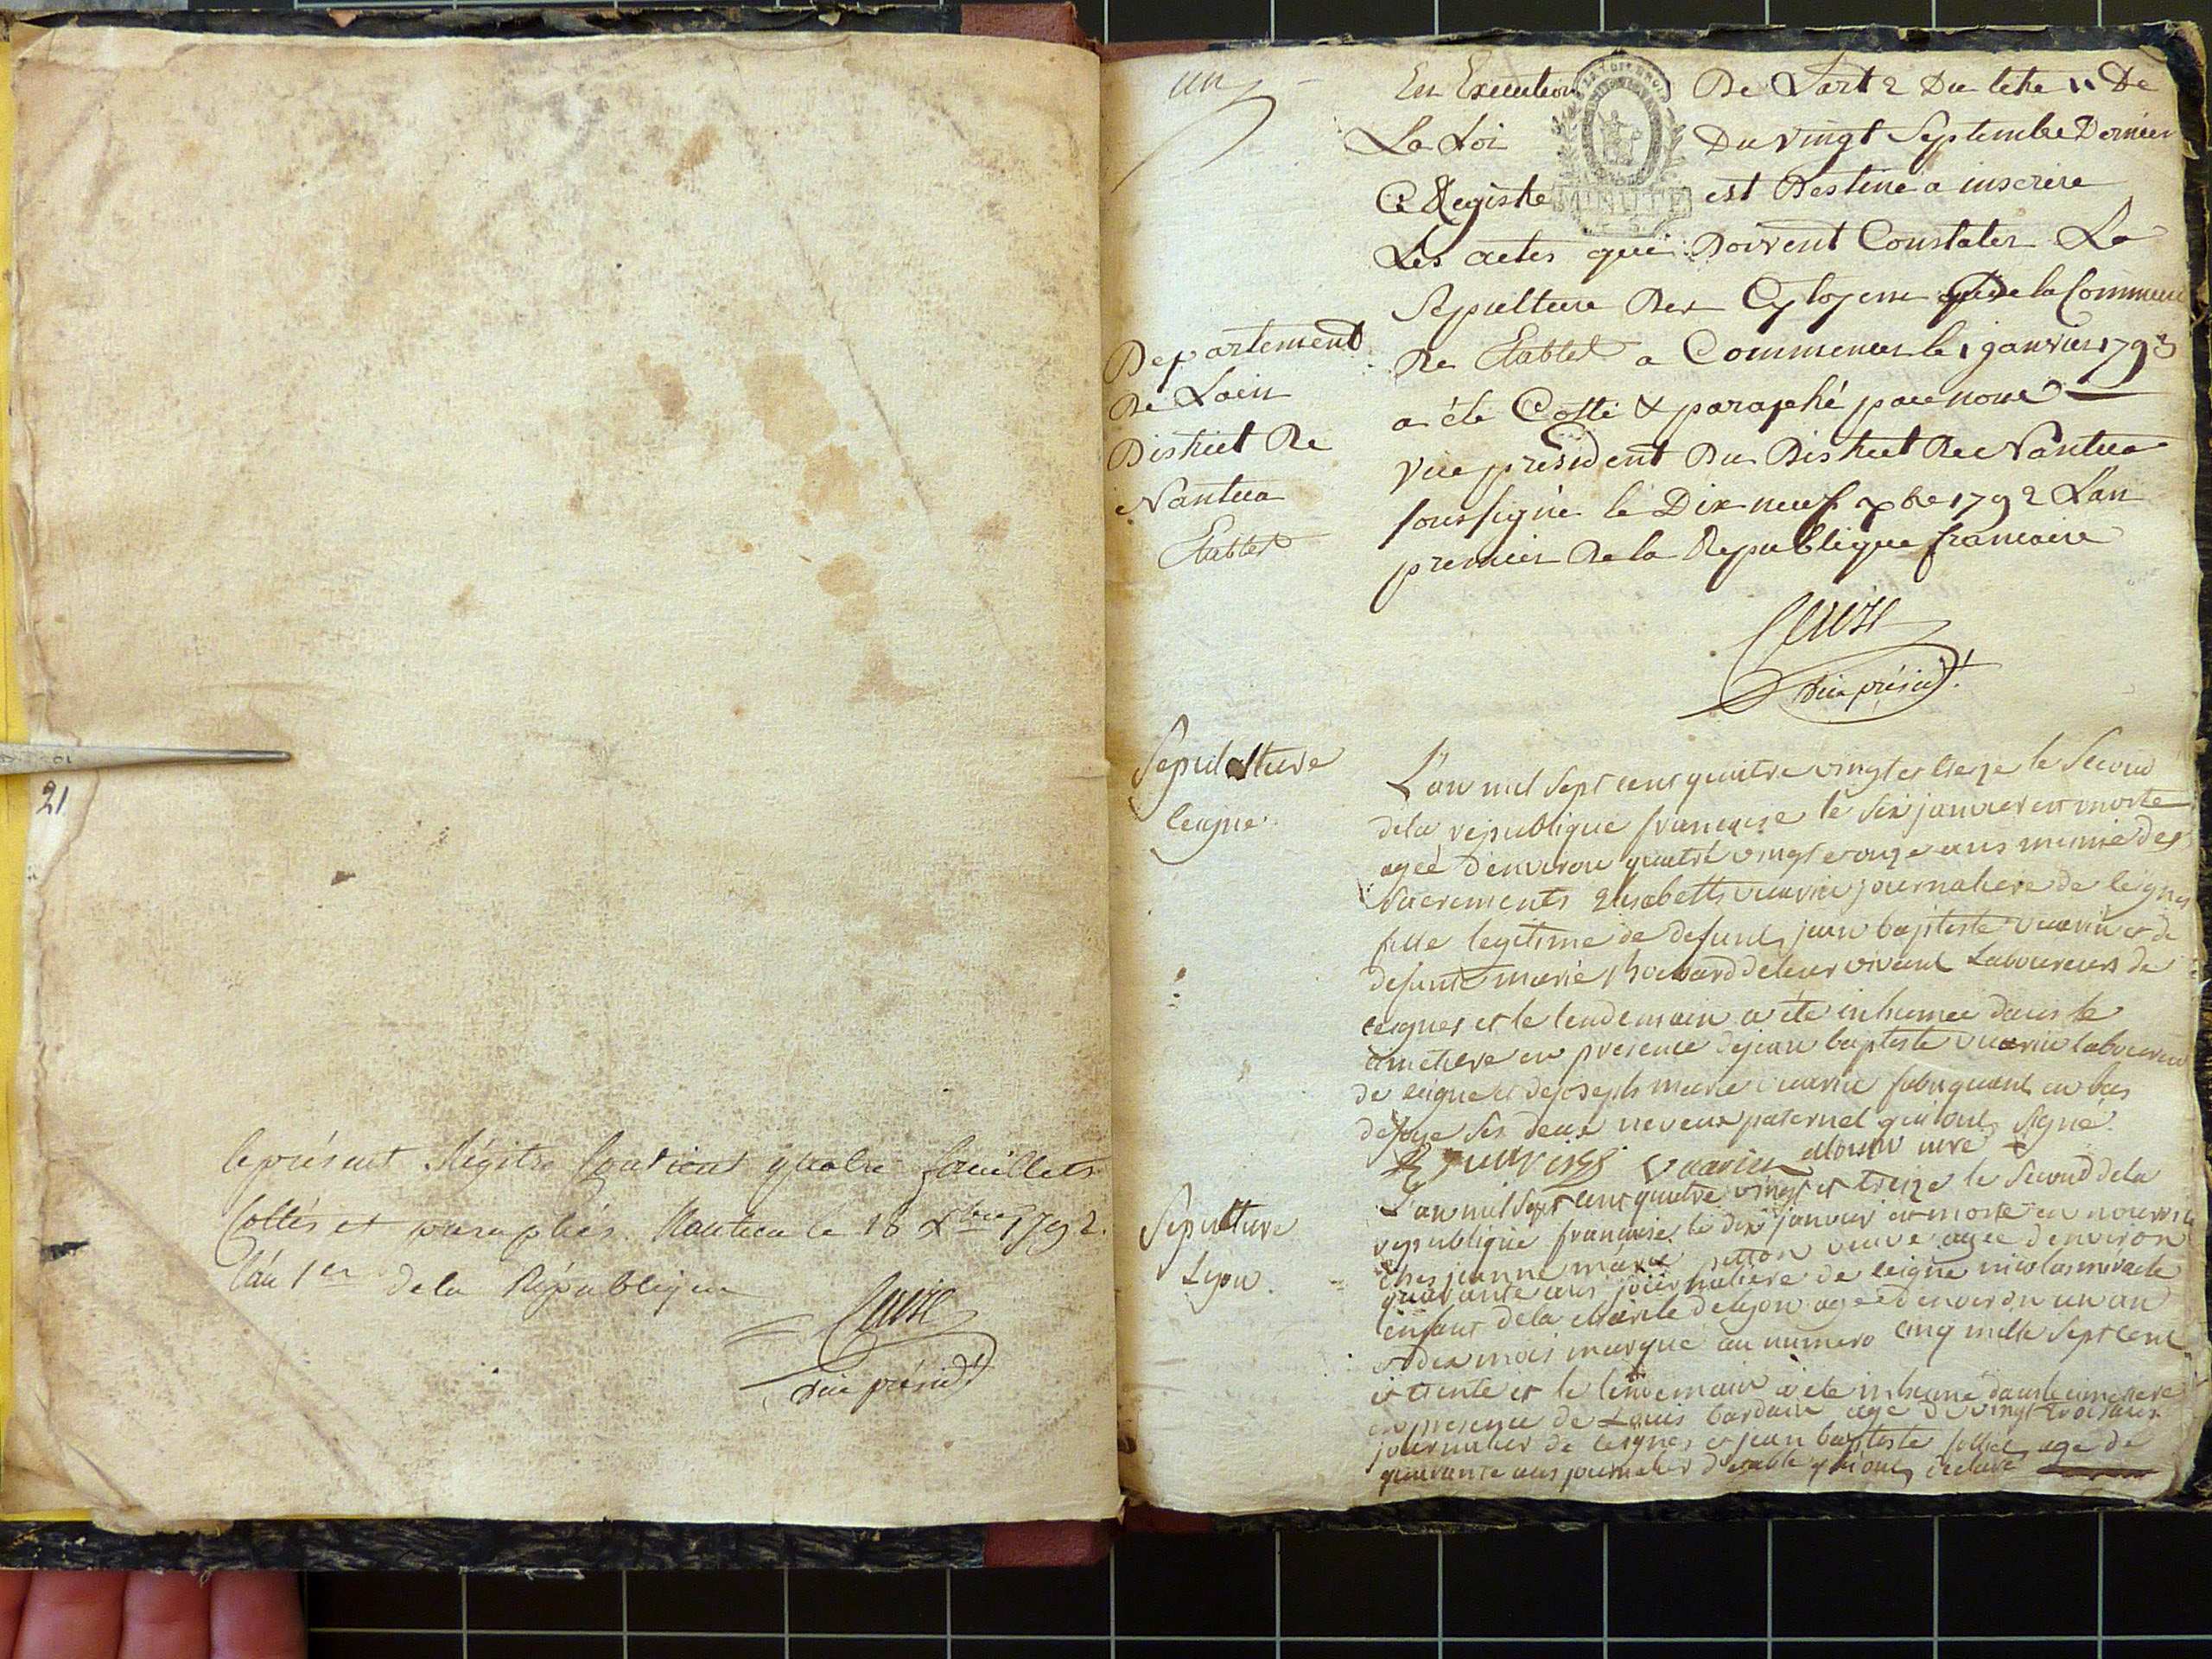 21
le présent Régitre Contient quatre feuillets
Cottés et paraphés. Nantua le 18 Xbre 1792.
l'an 1er de la République
vice présidt
un
En Execution De Lart 2 Du titre 11 De
La Loi Du vingt Septembre Dernier
Ce Registre est Destiné a inscrire
MINUTE
Les actes qui Doivent Constater La
Sepulture Des Cytoyens de la Commune
De Etables a Commencer le 1 janvier 1793
a été Cotté & paraphé par nous
vice président Du District De Nantua
soussigné le Dix neuf xbre 1792 Lan
premier De la Republique francaise
vice présidt.
Departement
De Lain
District De
Nantua
Etables
Sepulture
leigne
L'an mil sept cent quatre vingt et treze le second
dela republique francaise le six janvier est morte
agée d'environ quatre vingt et onze ans munie des
sacrements Elisabeth vuarin journaliere de ceignes
fille legitime de defunt jean baptiste vuarin et de
defunte marie deleur vivant Laboureurs de
ceignes et le lendemain a été inhumée dans le
cimetiere en presence de jean baptiste vuarin laboureur
de ceigne et de joseph marie vuarin fabriquant en bas
de soye ses deux neveux paternel qui ont signé
vuarin
Sepulture
Lyon.
L'an mil sept cent quatre vingt et treize le second dela
republique francaise le dix janvier est morte en nourrice
ches jeanne marie veuve agée d'environ
quarante ans journaliere de ceigne nicolas
enfant dela charité de lyon agée d'environ un an
et dix mois marqué au numero cinq mille sept cent
et trente et le lendemain a été inhumé dans le cimetiere
en presence de Louis bardain agé de vingt trois ans
journalier de ceignes et jean baptiste agé de
quarante ans journalier d'etable qui ont déclaré